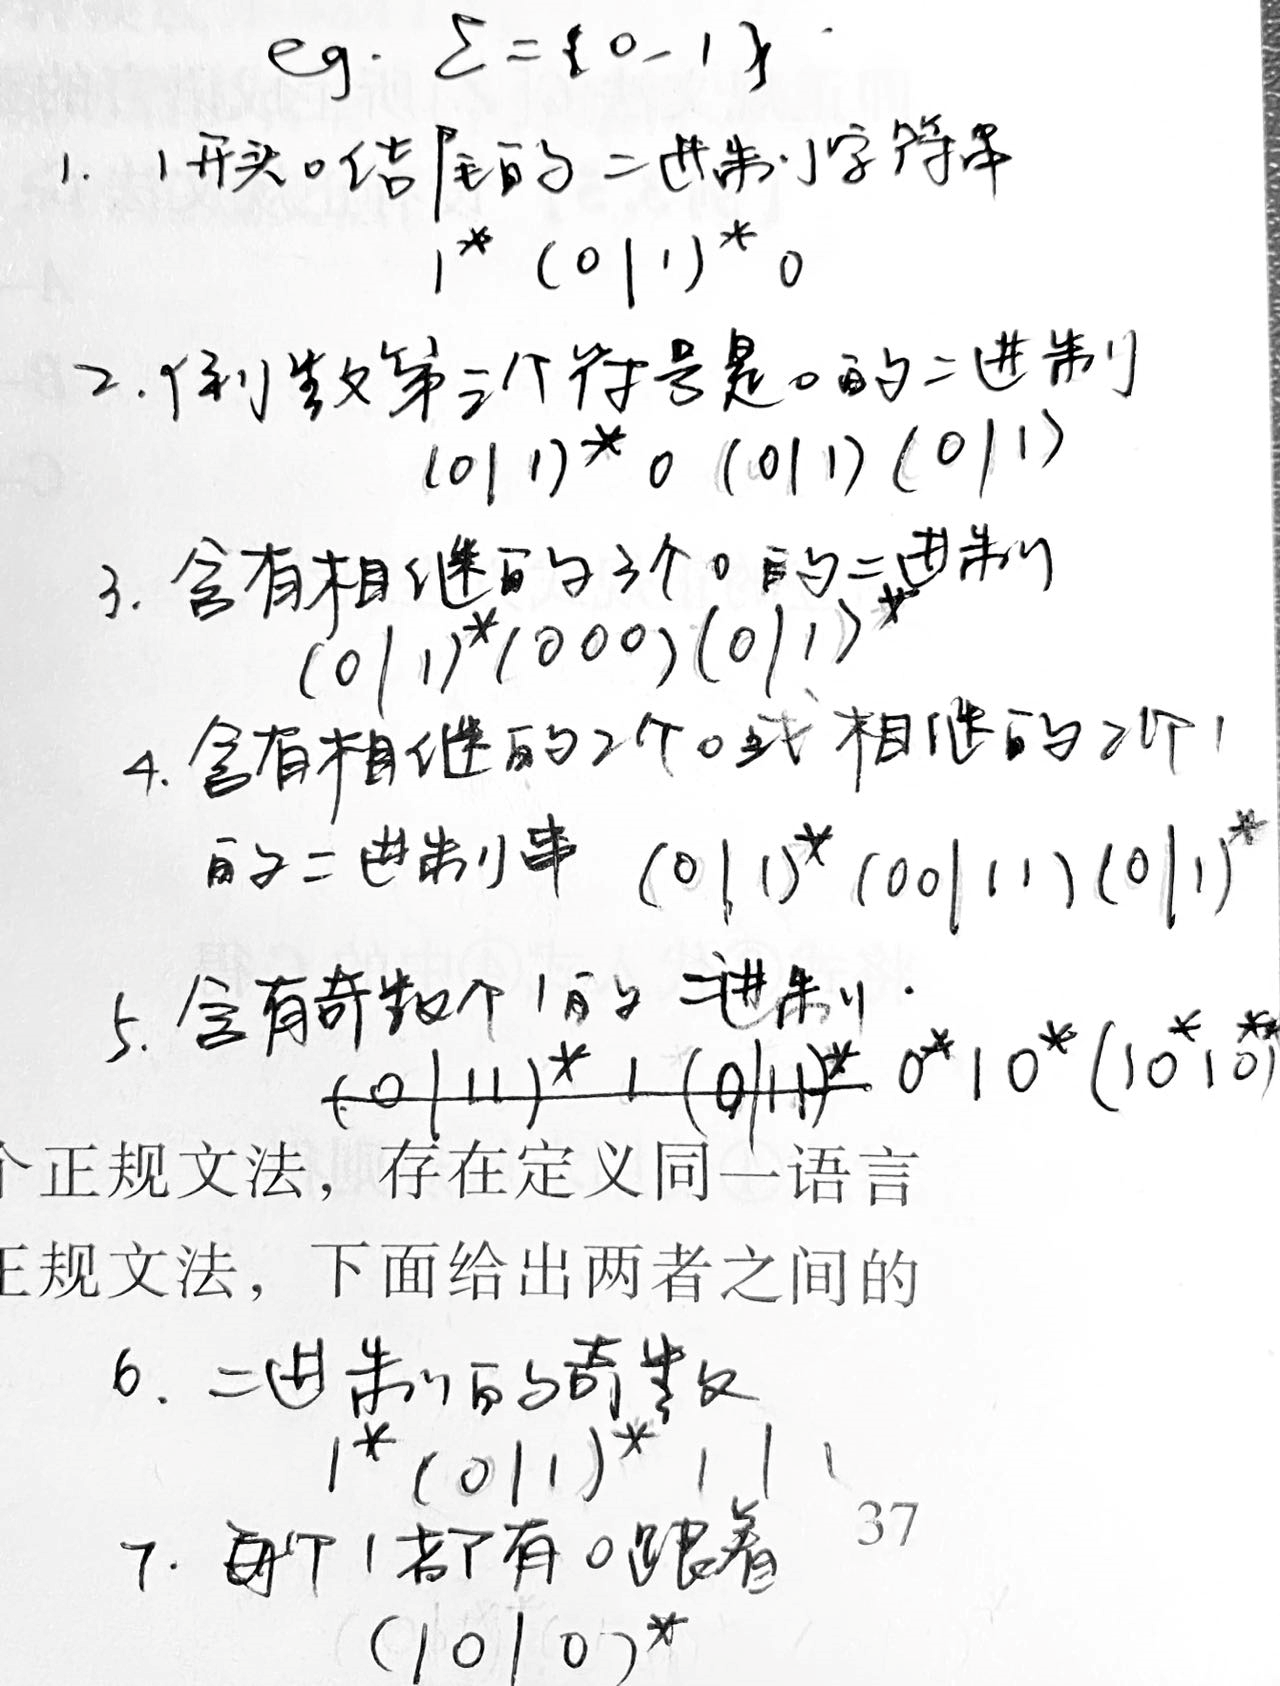 eg. Σ={0-1}
1. 1开头0结尾的二进制字符串
1* (0|1)* 0
2. 倒数第三个符号是0的二进制
(0|1)* 0 (0|1) (0|1)
3. 含有相继的3个0的二进制
(0|1)*(000)(0|1)*
4. 含有相继的2个0或相继的2个1
的二进制串 (0|1)* (00|11) (0|1)*
5. 含有奇数个1的二进制.
(0|11)* 1 (0|11)* 0*10*(10*10*)*
个正规文法，存在定义同一语言
正规文法，下面给出两者之间的
6. 二进制的奇数
1* (0|1)* 1 | 1
37
7. 每个1都有0跟着
(10|0)*